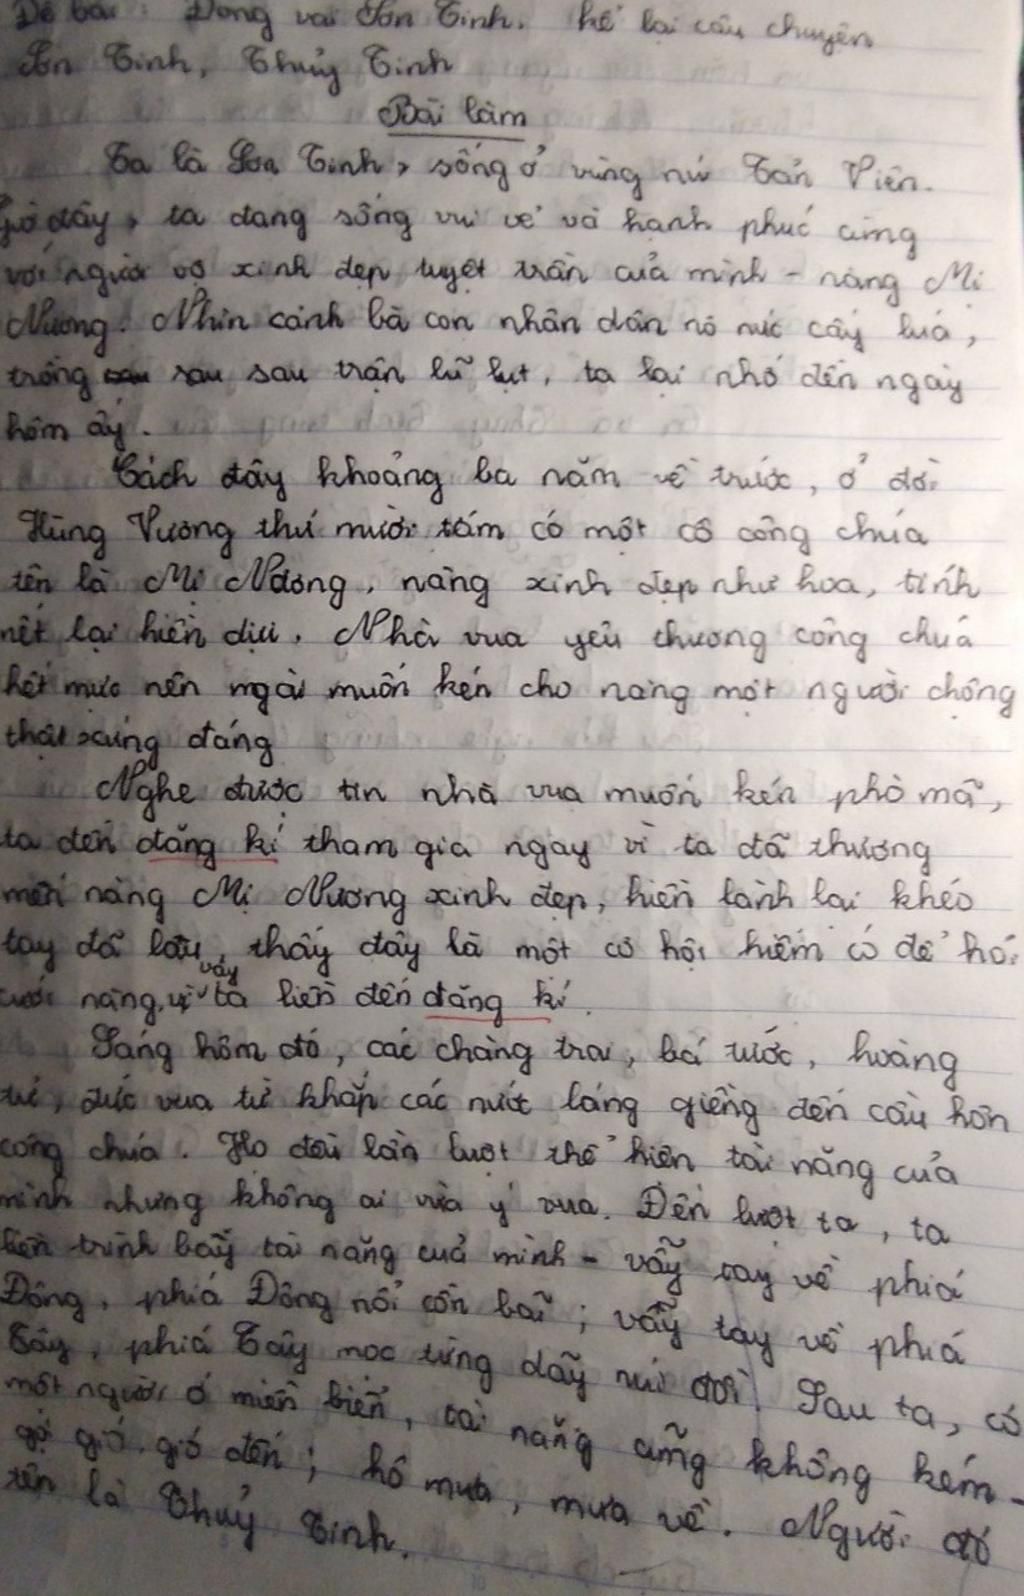 Đề bài : Đóng vai Sơn Tinh. kể lại câu chuyện
Sơn Tinh, Thuỷ Tinh
Bài làm
Ta là Sơn Tinh, sống ở vùng núi Tản Viên.
Giờ đây, ta đang sống vui vẻ và hạnh phúc cùng
với người vợ xinh đẹp tuyệt trần của mình - nàng Mị
Nương. Nhìn cảnh bà con nhân dân nô nức cấy lúa,
trồng rau sau trận lũ lụt, ta lại nhớ đến ngày
hôm ấy.
Cách đây khoảng ba năm về trước, ở đời
Hùng Vương thứ mười tám có một cô công chúa
tên là Mị Nương, nàng xinh đẹp như hoa, tính
nết lại hiền dịu. Nhà vua yêu thương công chúa
hết mực nên ngài muốn kén cho nàng một người chồng
thật xứng đáng
Nghe được tin nhà vua muốn kén phò mã,
ta đến đăng kí tham gia ngay vì ta đã thương
mến nàng Mị Nương xinh đẹp, hiền lành lại khéo
tay đã lâu, thấy đây là một cơ hội hiếm có để hỏi
cưới nàng, vì vậy ta liền đến đăng kí.
Sáng hôm đó, các chàng trai, bá tước, hoàng
tử, đức vua từ khắp các nước láng giềng đến cầu hôn
công chúa. Họ đều lần lượt thể hiện tài năng của
mình nhưng không ai vừa ý vua. Đến lượt ta, ta
liền trình bầy tài năng của mình - vẫy tay về phía
Đông, phía Đông nổi cồn bãi; vẫy tay về phía
Tây, phía Tây mọc từng dãy núi đồi. Sau ta, có
một người ở miền biển, tài năng cũng không kém -
gọi gió, gió đến; hô mưa, mưa về. Người đó
tên là Thuỷ Tinh.